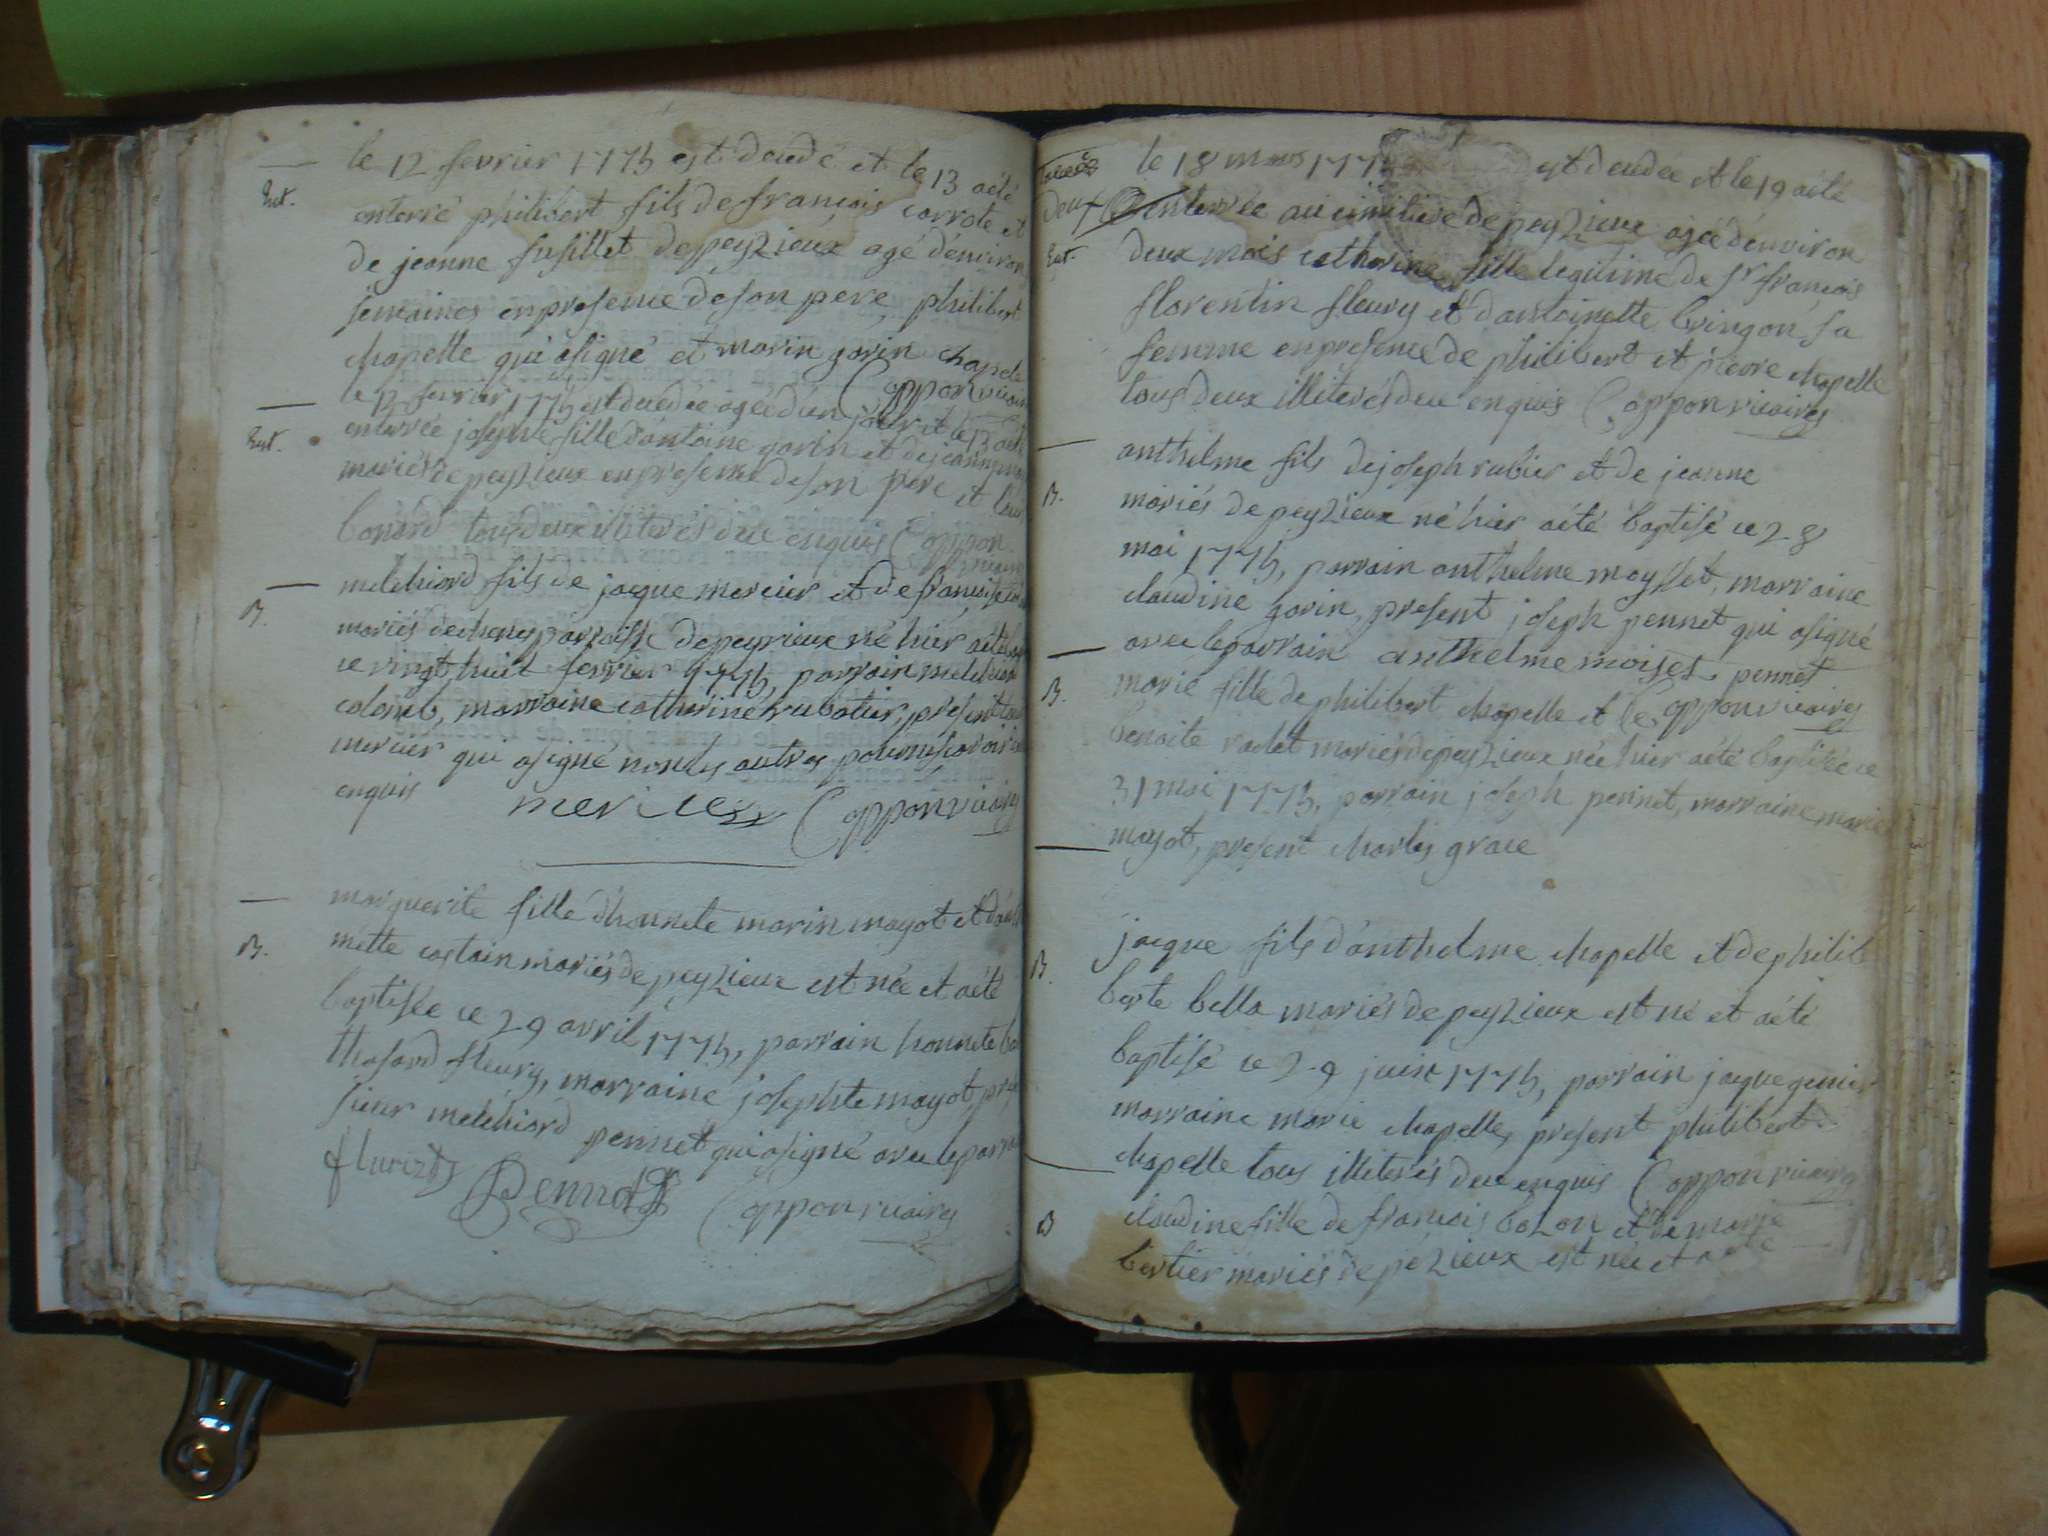 le 12 fevrier 1775 est decedé et le 13 aété
Ent.
enterré philibert fils de françois carrote et
de jeanne fusillet de peyzieux agé denviron
semaines en presence de son pere, philibert
chapelle qui asigné et marin garin chapele
C oppon vicaire
le 12 fevrier 1775 est decedée agée d'un jour et le 13 aété
Ent.
enterrée josephte fille d'antoine garin et de jeanne
mariés de peyzieux en presence de son pere et
bonard tous deux illiterés de ce enquis C oppon
vicaire
melchiord fils de jacque mercier et de françoise
B.
mariés de cheney parroisse de peyrieux né hier aété
ce vingt huit fevrier 1775, parrain melchior
colomb, marraine catherine rubatier, present
mercier qui asigné non les autres pour ne scavoir
enquis mercier C oppon vicaire
marguerite fille d'honnete marin mayot et
B.
mette costain mariés de peyzieux est née et aété
baptisée ce 29 avril 1775, parrain honnete
thasard fleury, marraine josephte mayot,
sieur melchiord pennet qui asigné avec le parrain
fleuriet Pennet C oppon vicaire
deux
le 18 mars 1775 est decedée et le 19 aété
enterrée au cimitiere de peyzieux agée d'environ
Ent.
deux mois catherine fille legitime de sr françois
florentin fleury et d'antoinette bringon sa
femme en presence de philibert et pierre chapelle
tous deux illiterés de ce enquis C oppon vicaire
anthelme fils de joseph rubier et de jeanne
B.
mariés de peyzieux né hier aété baptisé ce 28
mai 1775, parrain anthelme moysset, marraine
claudine garin, present joseph pennet qui asigné
avec le parrain anthelme moises pennet
B.
marie fille de philibert chapelle et de C oppon vicaire
benoite radet mariés de peyzieux née hier aété baptisée ce
31 mai 1775, parrain joseph pennet, marraine marie
mayot, present charles grace
jacque fils d'anthelme chapelle et de philib
B.
berte bella mariés de peyzieux est né et aété
baptisé ce 29 juin 1775, parrain jacque
marraine marie chapelle, present philibert
chapelle tous illiterés de ce enquis C oppon vicaire
B
claudine fille de françois bozon et de marie
bertier mariés de pezieux est née et aété